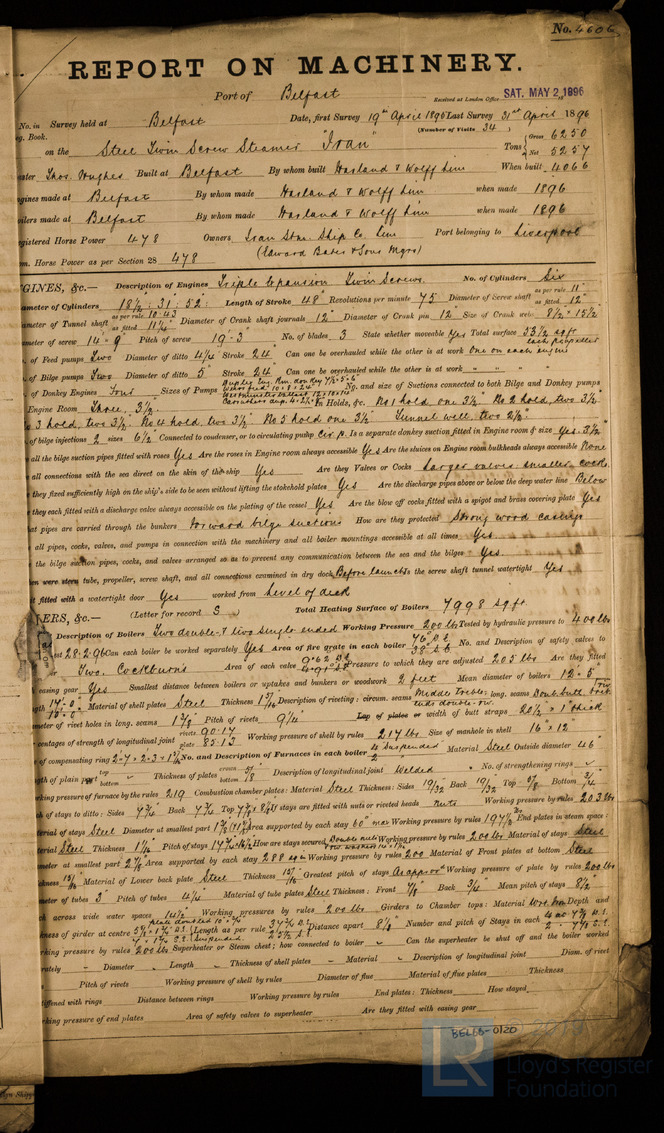 No. 4606
REPORT ON MACHINERY.
Port of Belfast
Received at London Office SAT. MAY 2 1896
No. in Survey held at Belfast Date, first Survey 19th April 1895 Last Survey 21st April 1896
Book. (Number of Visits 34)
on the Steel Twin Screw Steamer "Iran" Tons Gross 6250 Net 5257
Thos. Hughes Built at Belfast By whom built Harland & Wolff Lim When built
Engines made at Belfast By whom made Harland & Wolff Lim when made 1896
Boilers made at Belfast By whom made Harland & Wolff Lim when made 1896
Registered Horse Power 478 Owners Iran Star Ship Co. Lim Port belonging to Liverpool
Horse Power as per Section 28 478 (Edward Bates & Sons Mgrs)
GINES, &c.— Description of Engines Triple Expansion Twin Screws No. of Cylinders Six
ameter of Cylinders 18½": 31": 52" Length of Stroke 48" Revolutions per minute 75 Diameter of Screw shaft as per rule 11" as fitted 12"
ameter of Tunnel shaft as per rule 10.43 as fitted 11¼" Diameter of Crank shaft journals 12" Diameter of Crank pin 12" Size of Crank webs 8½" × 15½
ameter of screw 14-9 Pitch of screw 19'-3" No. of blades 3 State whether moveable Yes Total surface 33½ sqft each propeller
of Feed pumps Two Diameter of ditto 4¼" Stroke 24" Can one be overhauled while the other is at work one on each engine
of Bilge pumps Two Diameter of ditto 5" Stroke 24 Can one be overhauled while the other is at work " " "
of Donkey Engines Four Sizes of Pumps No. and size of Suctions connected to both Bilge and Donkey pumps
Engine Room Three, 3½" In Holds, &c. No 1 hold one 3½" No 2 hold, two 3½"
3 hold, two 3½" No 4 hold two 3½" No 5 hold one 3½" Tunnel well two 2½"
of bilge injections 2 sizes 6½ Connected to condenser, or to circulating pump Cir p. Is a separate donkey suction fitted in Engine room & size Yes. 3½"
all the bilge suction pipes fitted with roses Yes Are the roses in Engine room always accessible Yes Are the sluices on Engine room bulkheads always accessible None
all connections with the sea direct on the skin of the ship Yes Are they Valves or Cocks Larger valves smaller cocks
they fixed sufficiently high on the ship's side to be seen without lifting the stokehold plates Yes Are the discharge pipes above or below the deep water line Below
they each fitted with a discharge valve always accessible on the plating of the vessel Yes Are the blow off cocks fitted with a spigot and brass covering plate Yes
hat pipes are carried through the bunkers Forward bilge suctions How are they protected Strong wood casings
all pipes, cocks, valves, and pumps in connection with the machinery and all boiler mountings accessible at all times Yes
the bilge suction pipes, cocks, and valves arranged so as to prevent any communication between the sea and the bilges Yes
hen were stern tube, propeller, screw shaft, and all connections examined in dry dock Before launch Is the screw shaft tunnel watertight Yes
it fitted with a watertight door Yes worked from Level of deck
ERS, &c.— (Letter for record S) Total Heating Surface of Boilers 7998 sqft
Description of Boilers Two double & two single ended Working Pressure 200 lbs Tested by hydraulic pressure to 400 lbs
28-2-96 Can each boiler be worked separately Yes Area of fire grate in each boiler 76 D.E 38 S.E No. and Description of safety valves to
Two. Cockburn's Area of each valve Pressure to which they are adjusted 205 lbs Are they fitted
easing gear Yes Smallest distance between boilers or uptakes and bunkers or woodwork 2 feet Mean diameter of boilers 12-6"
Material of shell plates Steel Thickness Description of riveting: circum. seams Middle treble: ends double-riv. long. seams Doub. butt
meter of rivet holes in long. seams 1⅜ Pitch of rivets 9¼" Lap of plates or width of butt straps 22½"
centages of strength of longitudinal joint rivets 90.17 plate 85.13 Working pressure of shell by rules 217 lbs Size of manhole in shell 16" × 12
of compensating ring No. and Description of Furnaces in each boiler 4 Suspended 2 Material Steel Outside diameter 46"
ngth of plain part top bottom Thickness of plates crown bottom Description of longitudinal joint Welded No. of strengthening rings
orking pressure of furnace by the rules 219 Combustion chamber plates: Material Steel Thickness: Sides 19/32 Back 19/32 Top 5/8 Bottom 3/4
h of stays to ditto: Sides Back Top If stays are fitted with nuts or riveted heads nuts Working pressure by rules 203 lbs
terial of stays Steel Diameter at smallest part Area supported by each stay 60" Working pressure by rules End plates in steam space:
terial Steel Thickness Pitch of stays How are stays secured Double nuts Working pressure by rules 200 lbs Material of stays Steel
meter at smallest part Area supported by each stay 288 Working pressure by rules 200 Material of Front plates at bottom Steel
kness 15/16 Material of Lower back plate Steel Thickness 15/16 Greatest pitch of stays As approved Working pressure of plate by rules 200 lbs
meter of tubes 3" Pitch of tubes 4¼" Material of tube plates Steel Thickness: Front 7/8 Back 3/4 Mean pitch of stays 8½"
ch across wide water spaces 14½" Working pressures by rules 200 lbs Girders to Chamber tops: Material Wro. Iron Depth and
ckness of girder at centre Length as per rule Distance apart 8⅛ Number and pitch of Stays in each
orking pressure by rules 200 lbs Superheater or Steam chest; how connected to boiler Can the superheater be shut off and the boiler worked
rately Diameter Length Thickness of shell plates Material Description of longitudinal joint Diam. of rivet
Pitch of rivets Working pressure of shell by rules Diameter of flue Material of flue plates Thickness
tiffened with rings Distance between rings Working pressure by rules End plates: Thickness How stayed
orking pressure of end plates Area of safety valves to superheater Are they fitted with easing gear
BEL66-0120
LR
Lloyd's Register
Foundation